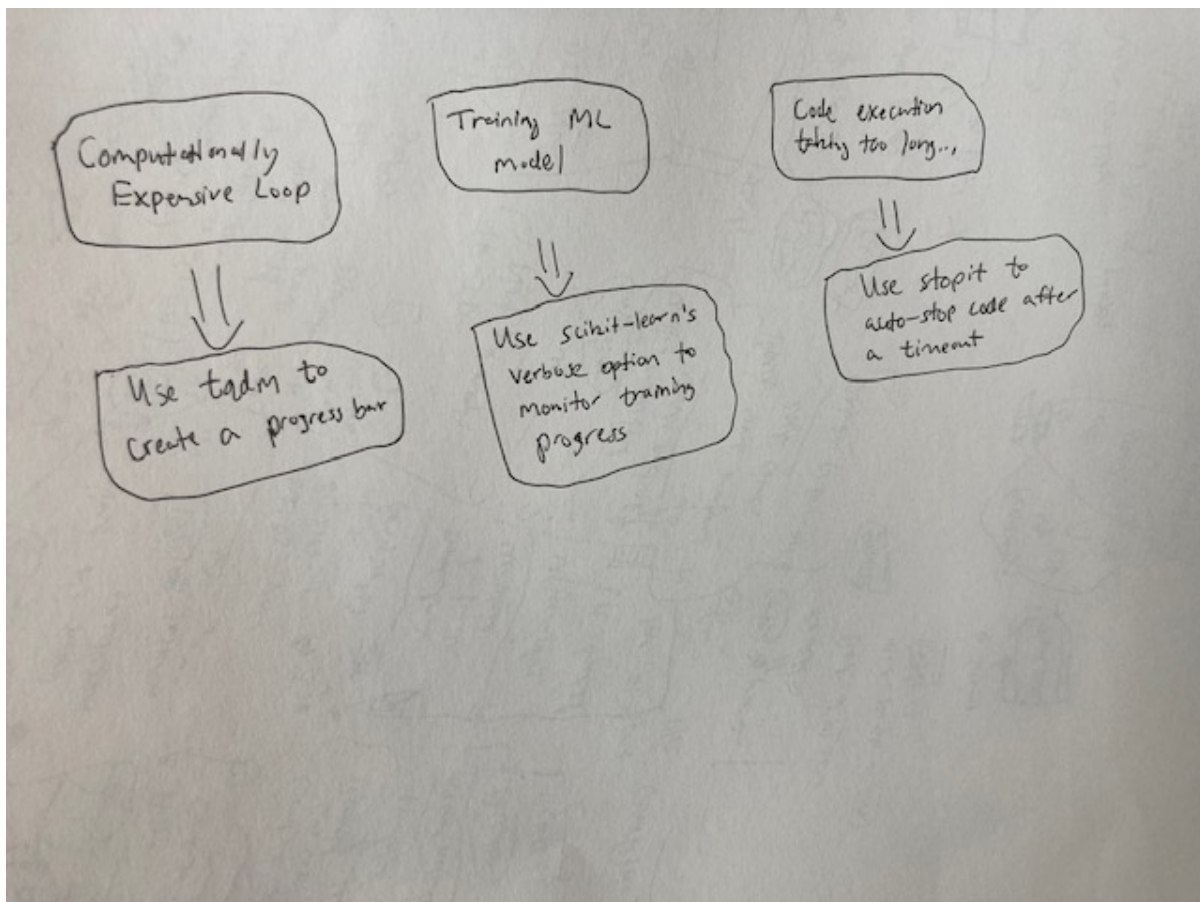 Computationally
Expensive Loop
Use tqdm to
create a progress bar
Training ML
model
Use scikit-learn's
verbose option to
monitor training
progress
Code execution
taking too long...
Use stopit to
auto-stop code after
a timeout